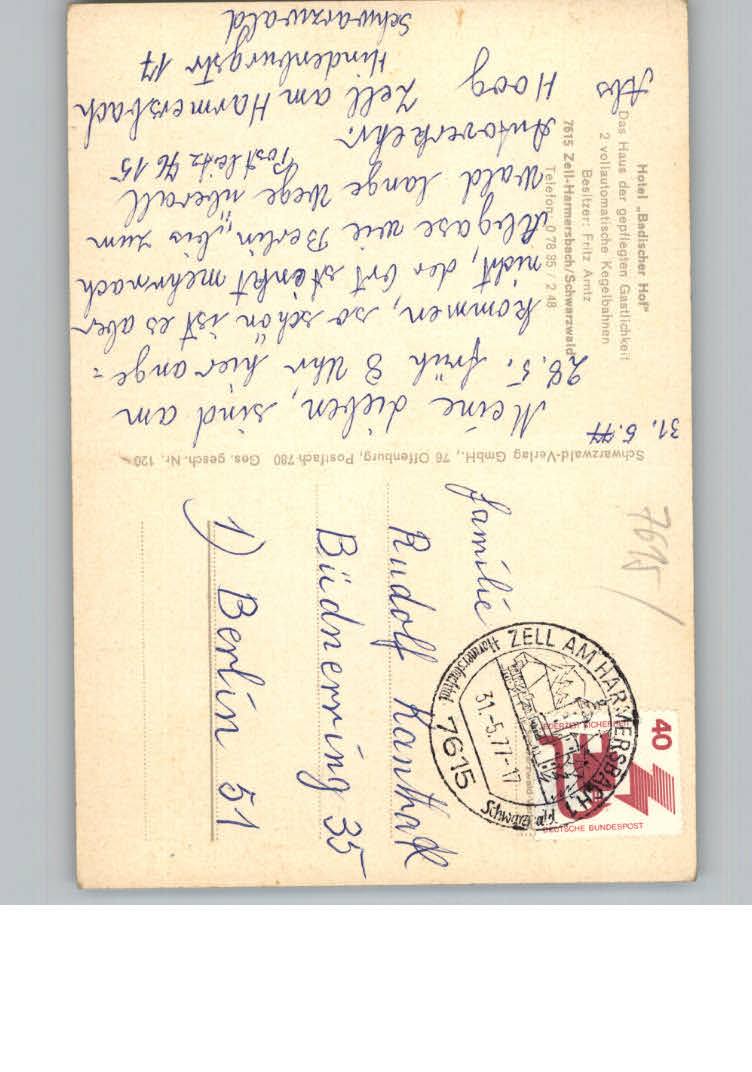 Hotel „Badischer Hof"
Das Haus der gepflegten Gastlichkeit
2 vollautomatische Kegelbahnen
Besitzer: Fritz Arntz
7615 Zell-Harmersbach/Schwarzwald
Telefon 0 78 35 / 2 48
31. 5. 77
Meine Lieben, sind am
28. 5. früh 8 Uhr hier ange=
kommen, so schön ist es aber
nicht, der Ort stinkt mehr nach
Abgase wie Berlin, bis zum
Wald lange Wege überall
Autoverkehr.
Postleitz 76 15
Abs
Hoog
Zell am Harmersbach
Hindenburgstr 17
Schwarzwald
Schwarzwald-Verlag GmbH., 76 Offenburg, Postfach 780 Ges. gesch. Nr. 120
7615 /
Familie
Rudolf
Büdnerring 35
1) Berlin 51
7615 ZELL AM HARMERSBACH 1
Harmersbachtal
31.-5.77-17
Schwarzwald
40
JEDERZEIT SICHERHEIT
DEUTSCHE BUNDESPOST